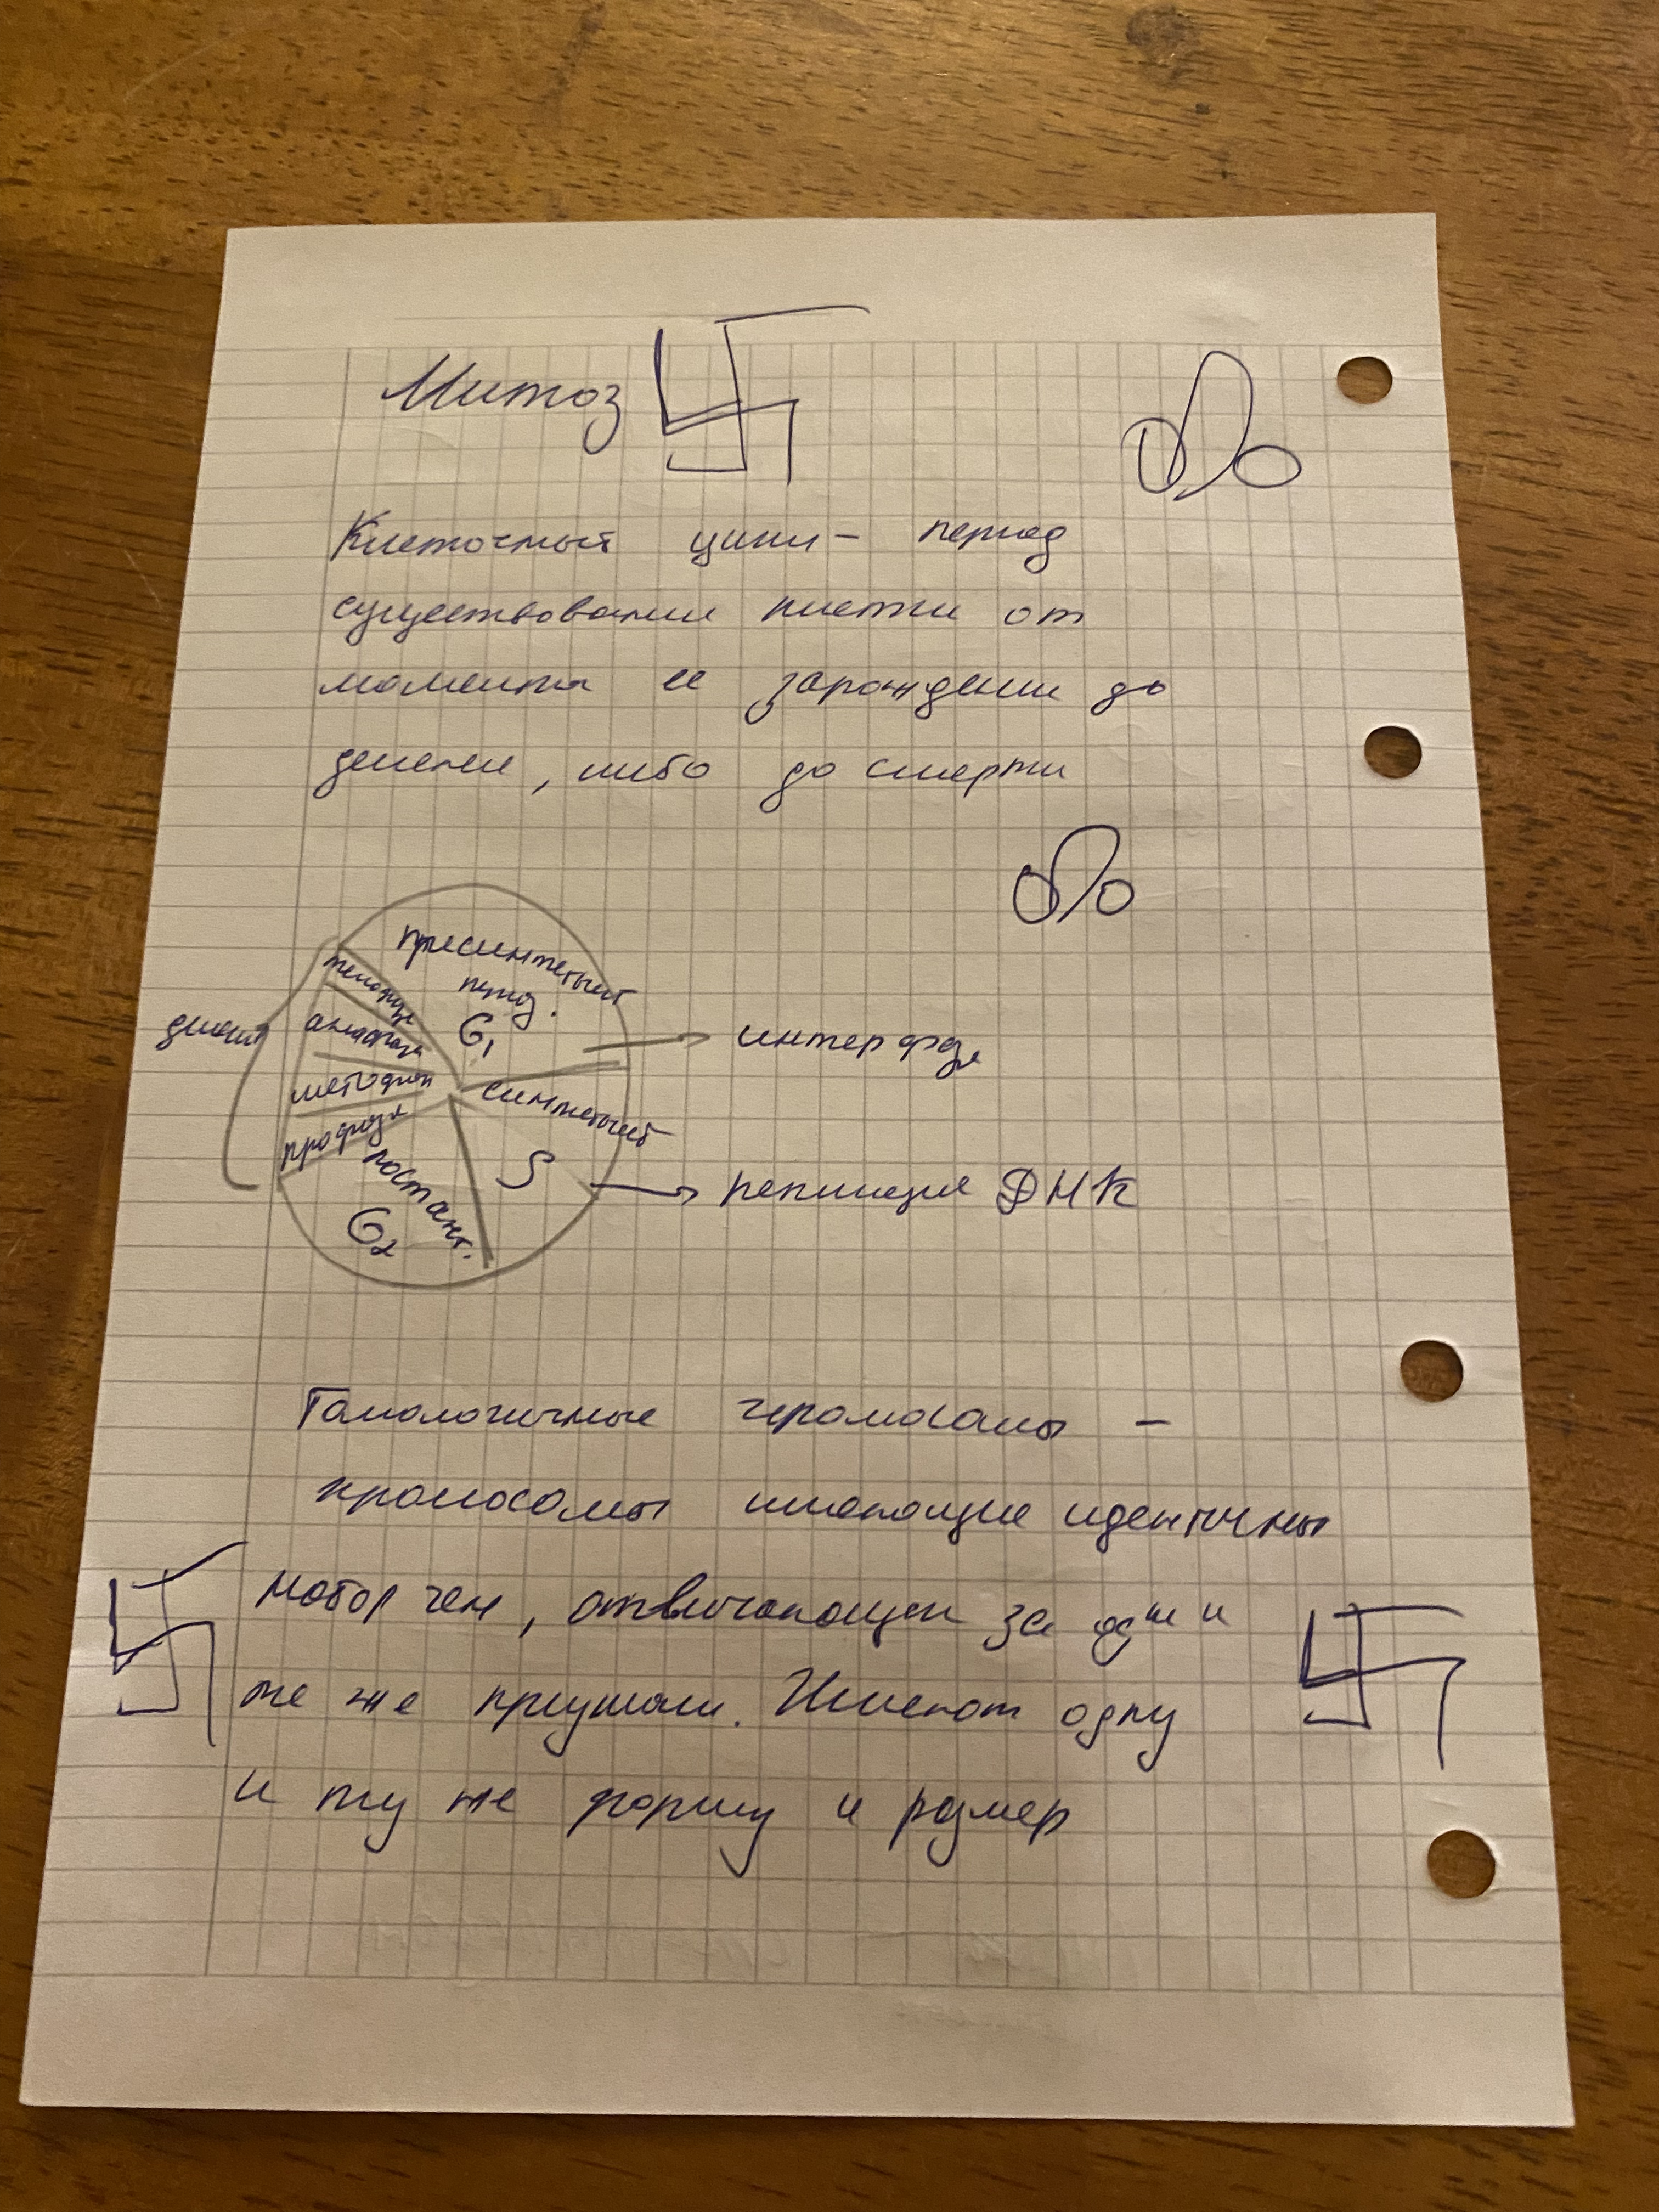 Митоз
Клеточный цикл - период
существования клетки от
момента ее зарождении до
делении, либо до смерти
пресинтетычный
период.
G₁
телофаза
анафаза
метафаза
профаза
интерфаза
синтетычный
S
репликация ДНК
постсинт.
G₂
Гомологичные хромосомы -
хромосомы имеющие идентичны
набор ген, отвичающей за одни и
те же признаки. Имеют одну
и ту же форму и размер